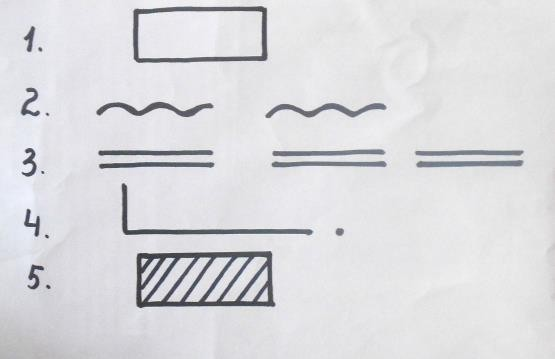 1.
2.
3.
4.
5.